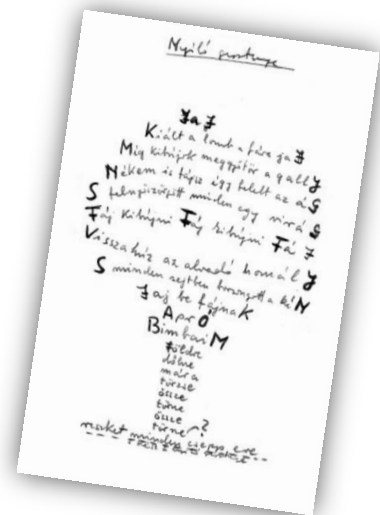 Nyiló gesztenye
JaJ
Kiált a lomb a fára jaJ
Mig kibújok meggyötör a gallY
Nékem is fájsz így felelt az áG
S felnyöszörgött minden egy viráG
Fáj kibújni Fáj kibújni FáJ
Visszahúz az alvadó homálY
S minden sejtben borzongott a kíN
Jaj be fájnaK
AprÓ
BimbaiM
földre
dőlne
mára
törzse
össze
törne
össze
törne?
reszket minden csepp ere